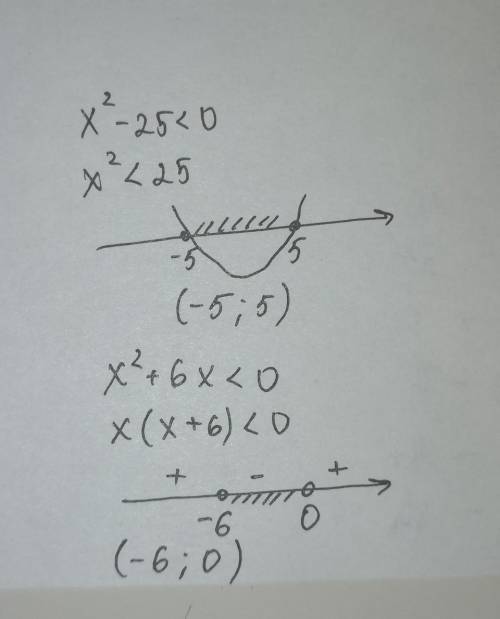 x² - 25 < 0
x² < 25
-5 5
(-5 ; 5)
x² + 6x < 0
x(x+6) < 0
+ - +
-6 0
(-6 ; 0)